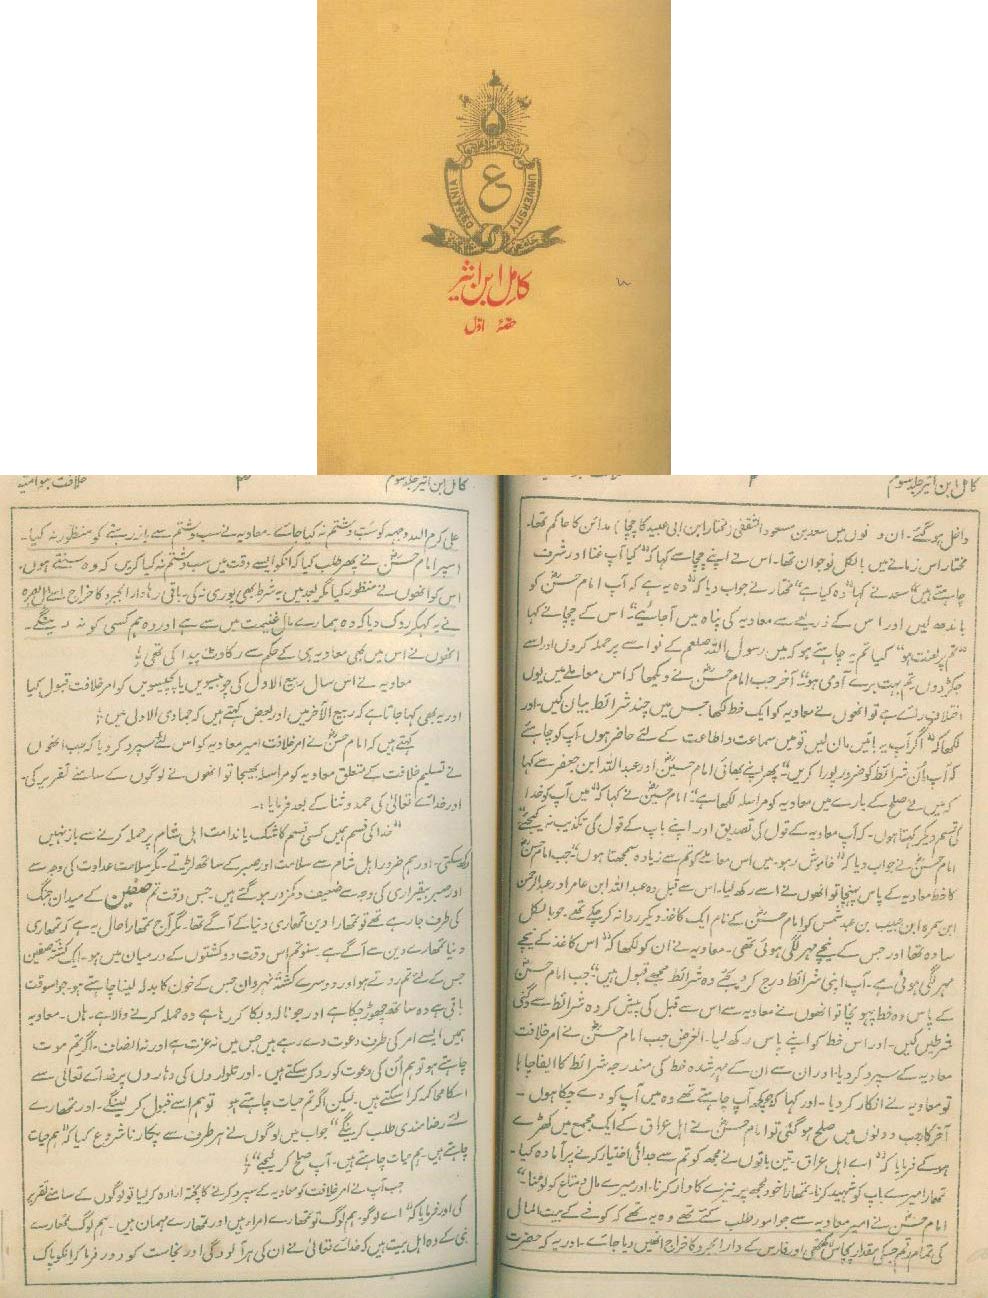 OSMANIA UNIVERSITY
ع
کامل ابن اثیر
حصۂ اوّل
کامل ابن اثیر جلد سوم
داخل ہو گئے۔ ان دنوں میں سعد بن مسعود الثقفی (مختار ابن ابی عبید کا چچا) مدائن کا حاکم تھا۔
مختار اس زمانے میں بالکل نوجوان تھا۔ اس نے اپنے چچا سے کہا کہ "کیا آپ غنا اور شرف
چاہتے ہیں" سعد نے کہا "وہ کیا ہے" مختار نے جواب دیا کہ "وہ یہ ہے کہ آپ امام حسنؓ کو
باندھ لیں اور اس کے ذریعے سے معاویہ کی پناہ میں آجائیے" اس کے چچا نے کہا
"تم پر لعنت ہو" کیا تم یہ چاہتے ہو کہ میں رسول اللہ صلعم کے نواسے پر حملہ کروں اور اسے
جکڑ دوں۔ تم بہت برے آدمی ہو" آخر جب امام حسنؓ نے دیکھا کہ اس معاملے میں یوں
اختلاف رائے ہے تو انھوں نے معاویہ کو ایک خط لکھا جس میں چند شرائط بیان کیں۔ اور
لکھا کہ "اگر آپ یہ باتیں مان لیں تو میں سماعت و اطاعت کے لئے حاضر ہوں۔ آپ کو چاہئے
کہ آپ اُن شرائط کو ضرور پورا کریں" پھر اپنے بھائی امام حسینؓ اور عبد اللہ ابن جعفر سے کہا
کہ میں نے صلح کے بارے میں معاویہ کو مراسلہ لکھا ہے" امام حسینؓ نے کہا کہ "میں آپ کو خدا
کی قسم دیکر کہتا ہوں۔ کہ آپ معاویہ کے قول کی تصدیق اور اپنے باپ کے قول کی تکذیب نہ کیجئے"
امام حسنؓ نے جواب دیا کہ "خاموش رہو۔ میں اس معاملے کو تم سے زیادہ سمجھتا ہوں" جب امام حسنؓ
کا خط معاویہ کے پاس پہنچا تو انھوں نے اسے رکھ لیا۔ اس سے قبل وہ عبد اللہ ابن عامر اور عبد الرحمن
ابن سمرہ ابن حبیب بن عبد شمس کو امام حسنؓ کے نام ایک کاغذ دیکر روانہ کر چکے تھے۔ جو بالکل
سادہ تھا اور جس کے نیچے مہر لگی ہوئی تھی۔ معاویہ نے ان کو لکھا کہ "اس کاغذ کے نیچے
مہر لگی ہوئی ہے۔ آپ اپنی شرائط درج کر دیجئے وہ شرائط مجھے قبول ہیں" جب امام حسنؓ
کے پاس وہ خط پہونچا تو انھوں نے معاویہ سے اس سے قبل کی پیش کردہ شرائط سے دگنی
شرطیں کیں۔ اور اس خط کو اپنے پاس رکھ لیا۔ الغرض جب امام حسنؓ نے امر خلافت
معاویہ کے سپرد کر دیا۔ اور ان سے ان کے مہر شدہ خط کی مندرجہ شرائط کا ایفا چاہا
تو معاویہ نے انکار کر دیا۔ اور کہا کہ جو کچھ آپ چاہتے تھے وہ میں آپ کو دے چکا ہوں۔
آخر کار جب دونوں میں صلح ہو گئی تو امام حسنؓ نے اہل عراق کے ایک مجمع میں کھڑے
ہو کے فرمایا کہ "اے اہل عراق۔ تین باتوں نے مجھ کو تم سے جدائی اختیار کرنے پر آمادہ کیا۔
تمھارا میرے باپ کو شہید کرنا۔ تمھارا خود مجھ پر نیزے کا وار کرنا۔ اور میرے مال و متاع کو لوٹنا"
امام حسنؓ نے امیر معاویہ سے جو امور طلب کئے تھے وہ یہ تھے کہ کوفے کے بیت المال
کی تمام رقم جسکی مقدار پچاس لاکھ تھی اور فارس کے دار ابجرد کا خراج انھیں دیا جائے۔ اور یہ کہ حضرت
کامل ابن اثیر جلد سوم
خلافت بنو امیہ
علی کرم اللہ وجہہ کو سب و شتم نہ کیا جائے۔ معاویہ نے سب و شتم سے باز رہنے کو منظور نہ کیا۔
اسپر امام حسنؓ نے پھر طلب کیا کہ انکو ایسے وقت میں سب و شتم نہ کیا کریں کہ وہ سنتے ہوں۔
اس کو انھوں نے منظور کیا مگر بعد میں یہ شرط بھی پوری نہ کی۔ باقی رہا دار ابجرد کا خراج اسے اہل بصرہ
نے یہ کہکر روک دیا کہ وہ ہمارے مال غنیمت میں سے ہے اور وہ ہم کسی کو نہ دینگے۔
انھوں نے اس میں بھی معاویہ ہی کے حکم سے رکاوٹ پیدا کی تھی؛
معاویہ نے اس سال ربیع الاول کی چوبیسویں یا پچیسویں کو امر خلافت قبول کیا
اور یہ بھی کہا جاتا ہے کہ ربیع الآخر میں اور بعض کہتے ہیں کہ جمادی الاول میں؛
کہتے ہیں کہ امام حسنؓ نے امر خلافت امیر معاویہ کو اس لئے سپرد کر دیا کہ جب انھوں
نے تسلیم خلافت کے متعلق معاویہ کو مراسلہ بھیجا تو انھوں نے لوگوں کے سامنے تقریر کی۔
اور خدائے تعالیٰ کی حمد و ثنا کے بعد فرمایا:۔
"خدا کی قسم ہمیں کسی قسم کا شک یا ندامت اہل شام پر حملہ کرنے سے باز نہیں
رکھ سکتی۔ اور ہم ضرور اہل شام سے سلامت اور صبر کے ساتھ لڑتے۔ مگر سلامت عداوت کی وجہ سے
اور صبر بیقراری کی وجہ سے ضعیف و کمزور ہو گئے ہیں۔ جس وقت تم صفین کے میدان جنگ
کی طرف جا رہے تھے تو تمھارا دین تمھاری دنیا کے آگے تھا۔ مگر آج تمھارا حال یہ ہے کہ تمھاری
دنیا تمھارے دین سے آگے ہے سنو تم اس وقت دو کشتوں کے درمیان میں ہو۔ ایک کشتہ صفین
جس کے لئے تم روتے ہو اور دوسرے کشتہ نہروان جس کے خون کا بدلہ لینا چاہتے ہو۔ جو اسوقت
باقی ہے وہ ساتھ چھوڑ چکا ہے اور جو نالہ و بکا کر رہا ہے وہ حملہ کرنے والا ہے۔ ہاں۔ معاویہ
ہمیں ایسے امر کی طرف دعوت دے رہے ہیں جس میں نہ عزت ہے اور نہ انصاف۔ اگر تم موت
چاہتے ہو تو ہم اُن کی دعوت کو رد کر سکتے ہیں۔ اور تلواروں کی دھاروں پر خدائے تعالیٰ سے
اسکا محاکمہ کرا سکتے ہیں۔ لیکن اگر تم حیات چاہتے ہو تو ہم اسے قبول کر لینگے۔ اور تمھارے
لئے رضامندی طلب کرینگے" جواب میں لوگوں نے ہر طرف سے پکارنا شروع کیا کہ "ہم حیات
چاہتے ہیں۔ ہم حیات چاہتے ہیں۔ آپ صلح کر لیجئے"؛
جب آپ نے امر خلافت کو معاویہ کے سپرد کرنے کا پختہ ارادہ کر لیا تو لوگوں کے سامنے تقریر
کی اور فرمایا کہ "اے لوگو۔ ہم لوگ تو تمھارے امراء ہیں اور تمھارے مہمان ہیں۔ ہم لوگ تمھارے
نبی کے وہ اہل بیت ہیں کہ خدائے تعالیٰ نے ان کی ہر آلودگی اور نجاست کو دور فرما کر انکو پاک